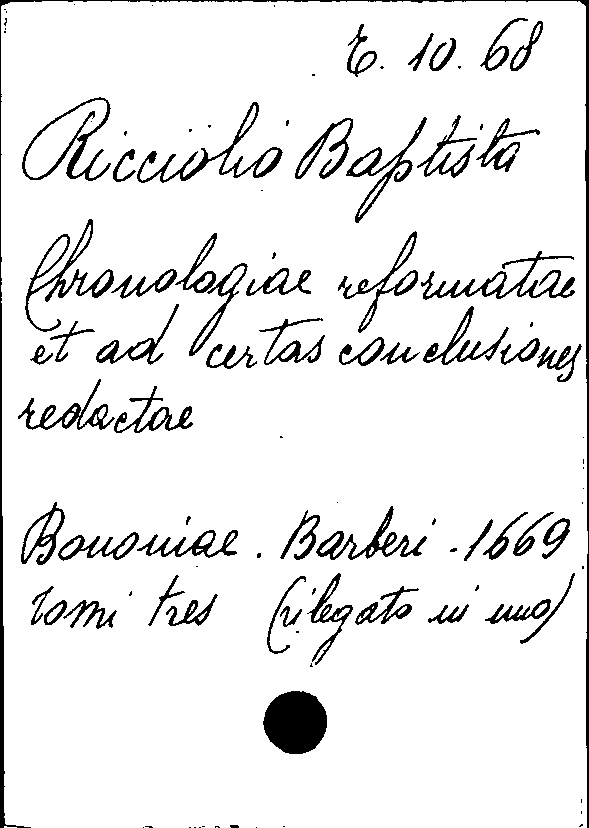 E. 10. 68
Ricciolio Baptista
Chronologiae reformatae
et ad certas conclusiones
redactae
Bononiae. Barberi. 1669
tomi tres (rilegato in uno)